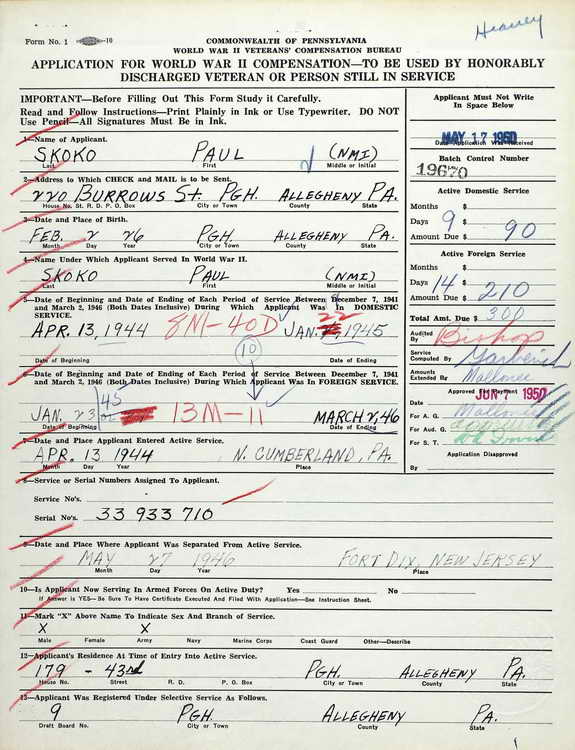 Heaney
Form No. 1 -10
COMMONWEALTH OF PENNSYLVANIA
WORLD WAR II VETERANS' COMPENSATION BUREAU
APPLICATION FOR WORLD WAR II COMPENSATION—TO BE USED BY HONORABLY
DISCHARGED VETERAN OR PERSON STILL IN SERVICE
IMPORTANT—Before Filling Out This Form Study it Carefully.
Read and Follow Instructions—Print Plainly in Ink or Use Typewriter. DO NOT
Use Pencil—All Signatures Must Be in Ink.
1—Name of Applicant.
SKOKO PAUL (NMI)
Last First Middle or Initial
2—Address to Which CHECK and MAIL is to be Sent.
220 BURROWS St. PGH. ALLEGHENY PA.
House No. St. R. D. P. O. Box City or Town County State
3—Date and Place of Birth.
FEB. 2 26 PGH. ALLEGHENY PA.
Month Day Year City or Town County State
4—Name Under Which Applicant Served In World War II.
SKOKO PAUL (NMI)
Last First Middle or Initial
5—Date of Beginning and Date of Ending of Each Period of Service Between December 7, 1941
and March 2, 1946 (Both Dates Inclusive) During Which Applicant Was In DOMESTIC
SERVICE.
22
APR. 13, 1944 8M-40D JAN. , 1945
10
Date of Beginning Date of Ending
6—Date of Beginning and Date of Ending of Each Period of Service Between December 7, 1941
and March 2, 1946 (Both Dates Inclusive) During Which Applicant Was In FOREIGN SERVICE.
45
JAN. 23 13M-11 MARCH 2, 46
Date of Beginning Date of Ending
7—Date and Place Applicant Entered Active Service.
APR. 13 1944 N. CUMBERLAND, PA.
Month Day Year Place
8—Service or Serial Numbers Assigned To Applicant.
Service No's.
Serial No's. 33 933 710
9—Date and Place Where Applicant Was Separated From Active Service.
MAY 27 1946 FORT DIX, NEW JERSEY
Month Day Year Place
10—Is Applicant Now Serving In Armed Forces On Active Duty? Yes No
If Answer is YES—Be Sure To Have Certificate Executed And Filed With Application—See Instruction Sheet.
11—Mark "X" Above Name To Indicate Sex And Branch of Service.
X X
Male Female Army Navy Marine Corps Coast Guard Other—Describe
12—Applicant's Residence At Time of Entry Into Active Service.
179 - 43rd PGH. ALLEGHENY PA.
House No. Street R. D. P. O. Box City or Town County State
13—Applicant Was Registered Under Selective Service As Follows.
9 PGH. ALLEGHENY PA.
Draft Board No. City or Town County State
Applicant Must Not Write
In Space Below
MAY 17 1950
Date Application Was Received
Batch Control Number
19670
Active Domestic Service
Months $
Days 9 $
Amount Due $ 90
Active Foreign Service
Months $
Days 14 $
Amount Due $ 210
Total Amt. Due $ 300
Audited
By Bishop
Service
Computed By
Amounts
Extended By Mallonee
Approved For Payment
Date JUN 7 1950
For A. G.
For Aud. G.
For S. T.
Application Disapproved
By